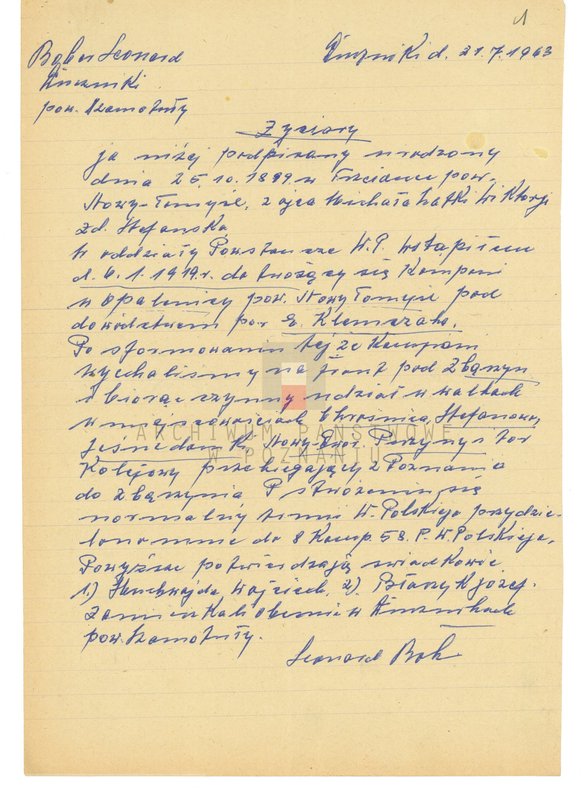 1
Leonard d. 21.7.1963
pow. Szamotuły
Życiorys
ja niżej podpisany urodzony
dnia 25.10.1899 w Trzciance pow.
Nowy-Tomyśl, z ojca Michała Matki Wiktorji
zd. Stefańska
w oddziały Powstańcze W.P. wstąpiłem
d. 6.1.1919r. do tworzący się Kompani
w Opalenicy pow. Nowy Tomyśl pod
dowództwem por E. Klemczaka.
Po sformowaniu tej że Kompani
wyjechaliśmy na front pod Zbąszyn
i biorąc czynny udział w walkach
w miejscowościach Chrośnica, Stefanowo,
Nowy-Dwór, Perzyny i tor
Kolejowy przebiegający z Poznania
do Zbąszynia
normalny W. Polskiego przydzie-
lono mnie do 8 Komp 58. P. W. Polskiego,
Powyższe potwierdzają świadkowie
1) Wojciech, 2). Błaszyk józef.
Zamieszkali obecnie w
pow. Szamotuły.
Leonard
ARCHIWUM PAŃSTWOWE
W POZNANIU